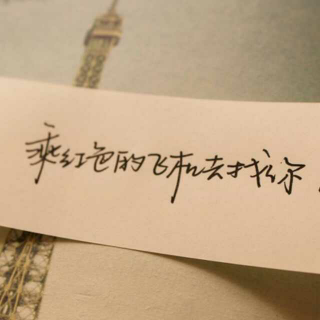 乘红色的飞机去找你